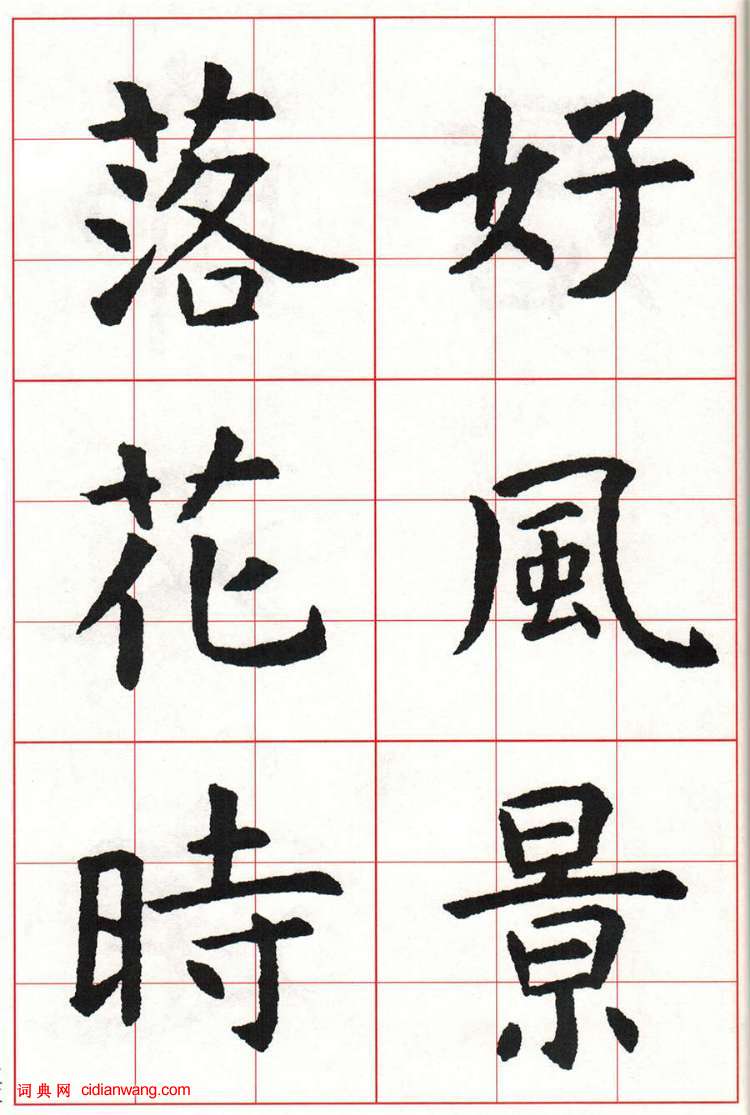 好風景
落花時
词典网 cidianwang.com